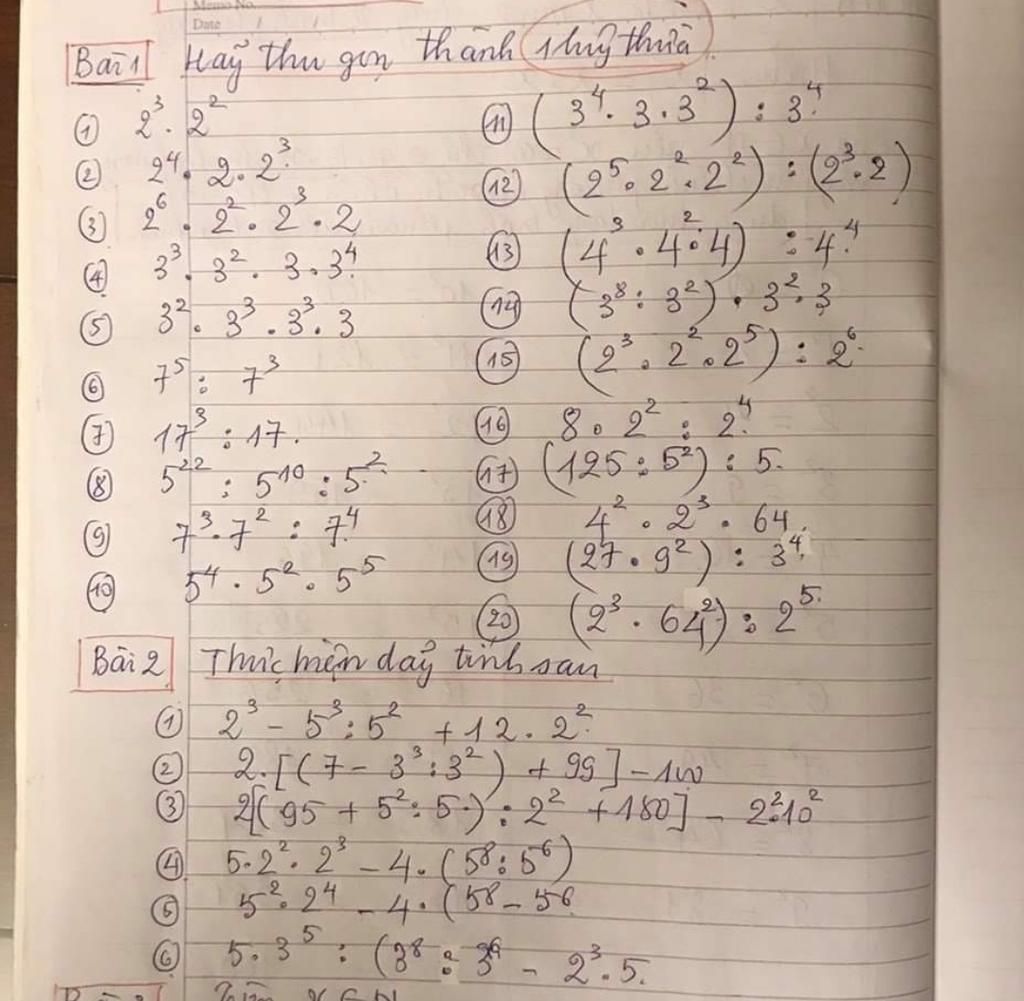 Memo No.
Date / /
Bài 1 Hãy thu gọn thành 1 luỹ thừa
① 2³ . 2²
② 2⁴ . 2 . 2³
③ 2⁶ . 2² . 2³ . 2
④ 3³ . 3² . 3 . 3⁴
⑤ 3² . 3³ . 3³ . 3
⑥ 7⁵ : 7³
⑦ 17³ : 17.
⑧ 5²² : 5¹⁰ : 5²
⑨ 7³ . 7² : 7⁴
⑩ 5⁴ . 5² . 5⁵
⑪ (3⁴ . 3 . 3²) : 3⁴
⑫ (2⁵ . 2² . 2²) : (2³ . 2)
⑬ (4³ . 4² . 4) : 4⁴
⑭ (3⁸ : 3²) . 3² . 3
⑮ (2³ . 2² . 2⁵) : 2⁶
⑯ 8 . 2² : 2⁴
⑰ (125 : 5²) : 5.
⑱ 4² . 2³ . 64.
⑲ (27 . 9²) : 3⁴
⑳ (2³ . 64²) : 2⁵
Bài 2 Thực hiện dãy tính sau
① 2³ - 5³ : 5² + 12 . 2²
② 2. [(7 - 3³ : 3²) + 99] - 100
③ 2[(95 + 5² : 5.) : 2² + 180] - 2² . 10²
④ 5 . 2² . 2³ - 4 . (5⁸ : 5⁶)
⑤ 5² . 2⁴ - 4 . (58 - 56
⑥ 5 . 3⁵ : (3⁸ : 3⁶ - 2³ . 5.